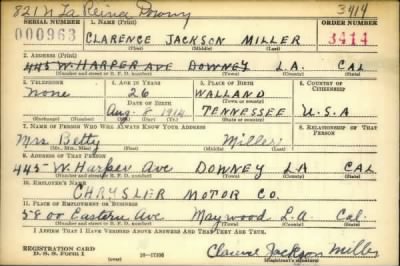 821 N La Reina Downy 3414
SERIAL NUMBER 1. NAME (Print) ORDER NUMBER
000963 CLARENCE JACKSON MILLER 3414
(First) (Middle) (Last)
2. ADDRESS (Print)
445 W. HARPER AVE DOWNEY L.A. CAL
(Number and street or R. F. D. number) (Town) (County) (State)
3. TELEPHONE 4. AGE IN YEARS 5. PLACE OF BIRTH 6. COUNTRY OF CITIZENSHIP
none 26 WALLAND
DATE OF BIRTH (Town or county)
Aug. 8 1914 TENNESSEE U.S.A
(Mo.) (Day) (Yr.) (State or country)
7. NAME OF PERSON WHO WILL ALWAYS KNOW YOUR ADDRESS 8. RELATIONSHIP OF THAT PERSON
Mrs Betty Miller
(Mr., Mrs., Miss) (First) (Middle) (Last)
9. ADDRESS OF THAT PERSON
445 W. Harper Ave DOWNEY LA CAL.
(Number and street or R. F. D. number) (Town) (County) (State)
10. EMPLOYER'S NAME
CHRYSLER MOTOR CO.
11. PLACE OF EMPLOYMENT OR BUSINESS
5800 Eastern Ave Maywood L.A. Cal.
(Number and street or R. F. D. number) (Town) (County) (State)
I AFFIRM THAT I HAVE VERIFIED ABOVE ANSWERS AND THAT THEY ARE TRUE.
REGISTRATION CARD
D. S. S. Form 1 (over) 16—17105 Clarence Jackson Miller
(Registrant's signature)